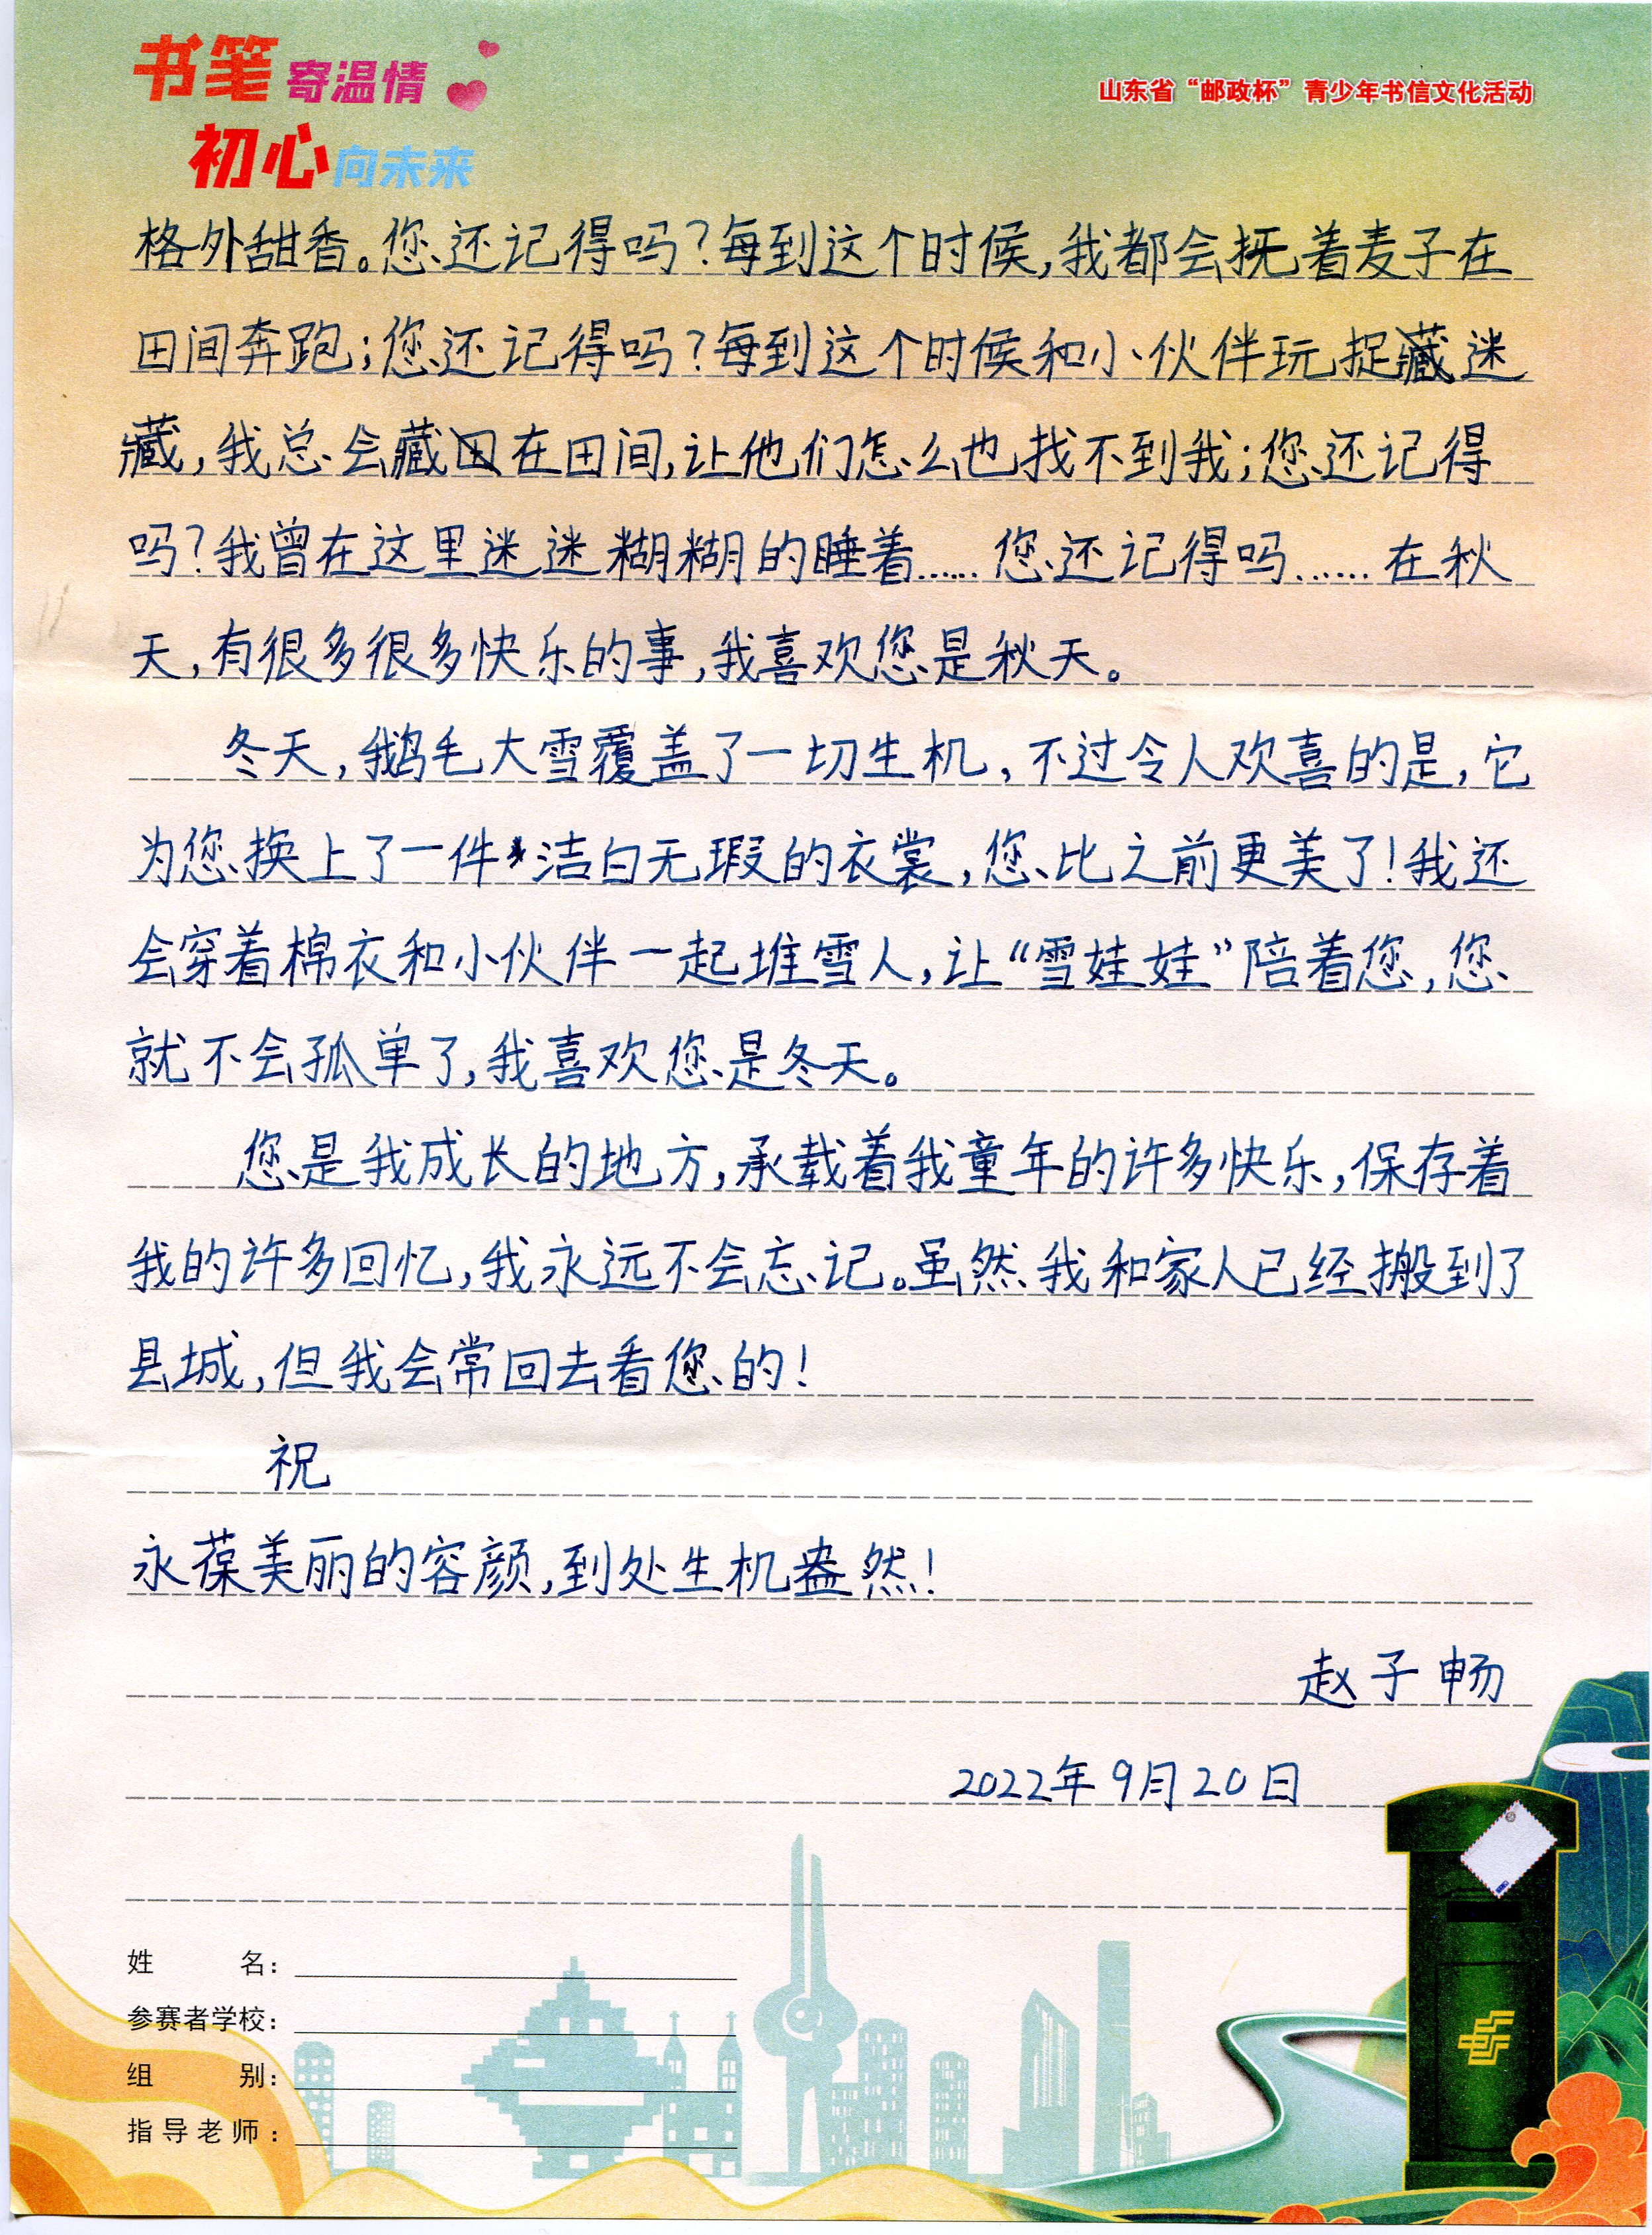 书笔寄温情
初心向未来
山东省“邮政杯”青少年书信文化活动
格外甜香。您还记得吗？每到这个时候，我都会抚着麦子在
田间奔跑；您还记得吗？每到这个时候和小伙伴玩捉迷
藏，我总会藏在田间，让他们怎么也找不到我；您还记得
吗？我曾在这里迷迷糊糊的睡着……您还记得吗……在秋
天，有很多很多快乐的事，我喜欢您是秋天。
冬天，鹅毛大雪覆盖了一切生机，不过令人欢喜的是，它
为您换上了一件洁白无瑕的衣裳，您比之前更美了！我还
会穿着棉衣和小伙伴一起堆雪人，让“雪娃娃”陪着您，您
就不会孤单了，我喜欢您是冬天。
您是我成长的地方，承载着我童年的许多快乐，保存着
我的许多回忆，我永远不会忘记。虽然我和家人已经搬到了
县城，但我会常回去看您的！
祝
永葆美丽的容颜，到处生机盎然！
赵子畅
2022年9月20日
姓名：
参赛者学校：
组别：
指导老师：